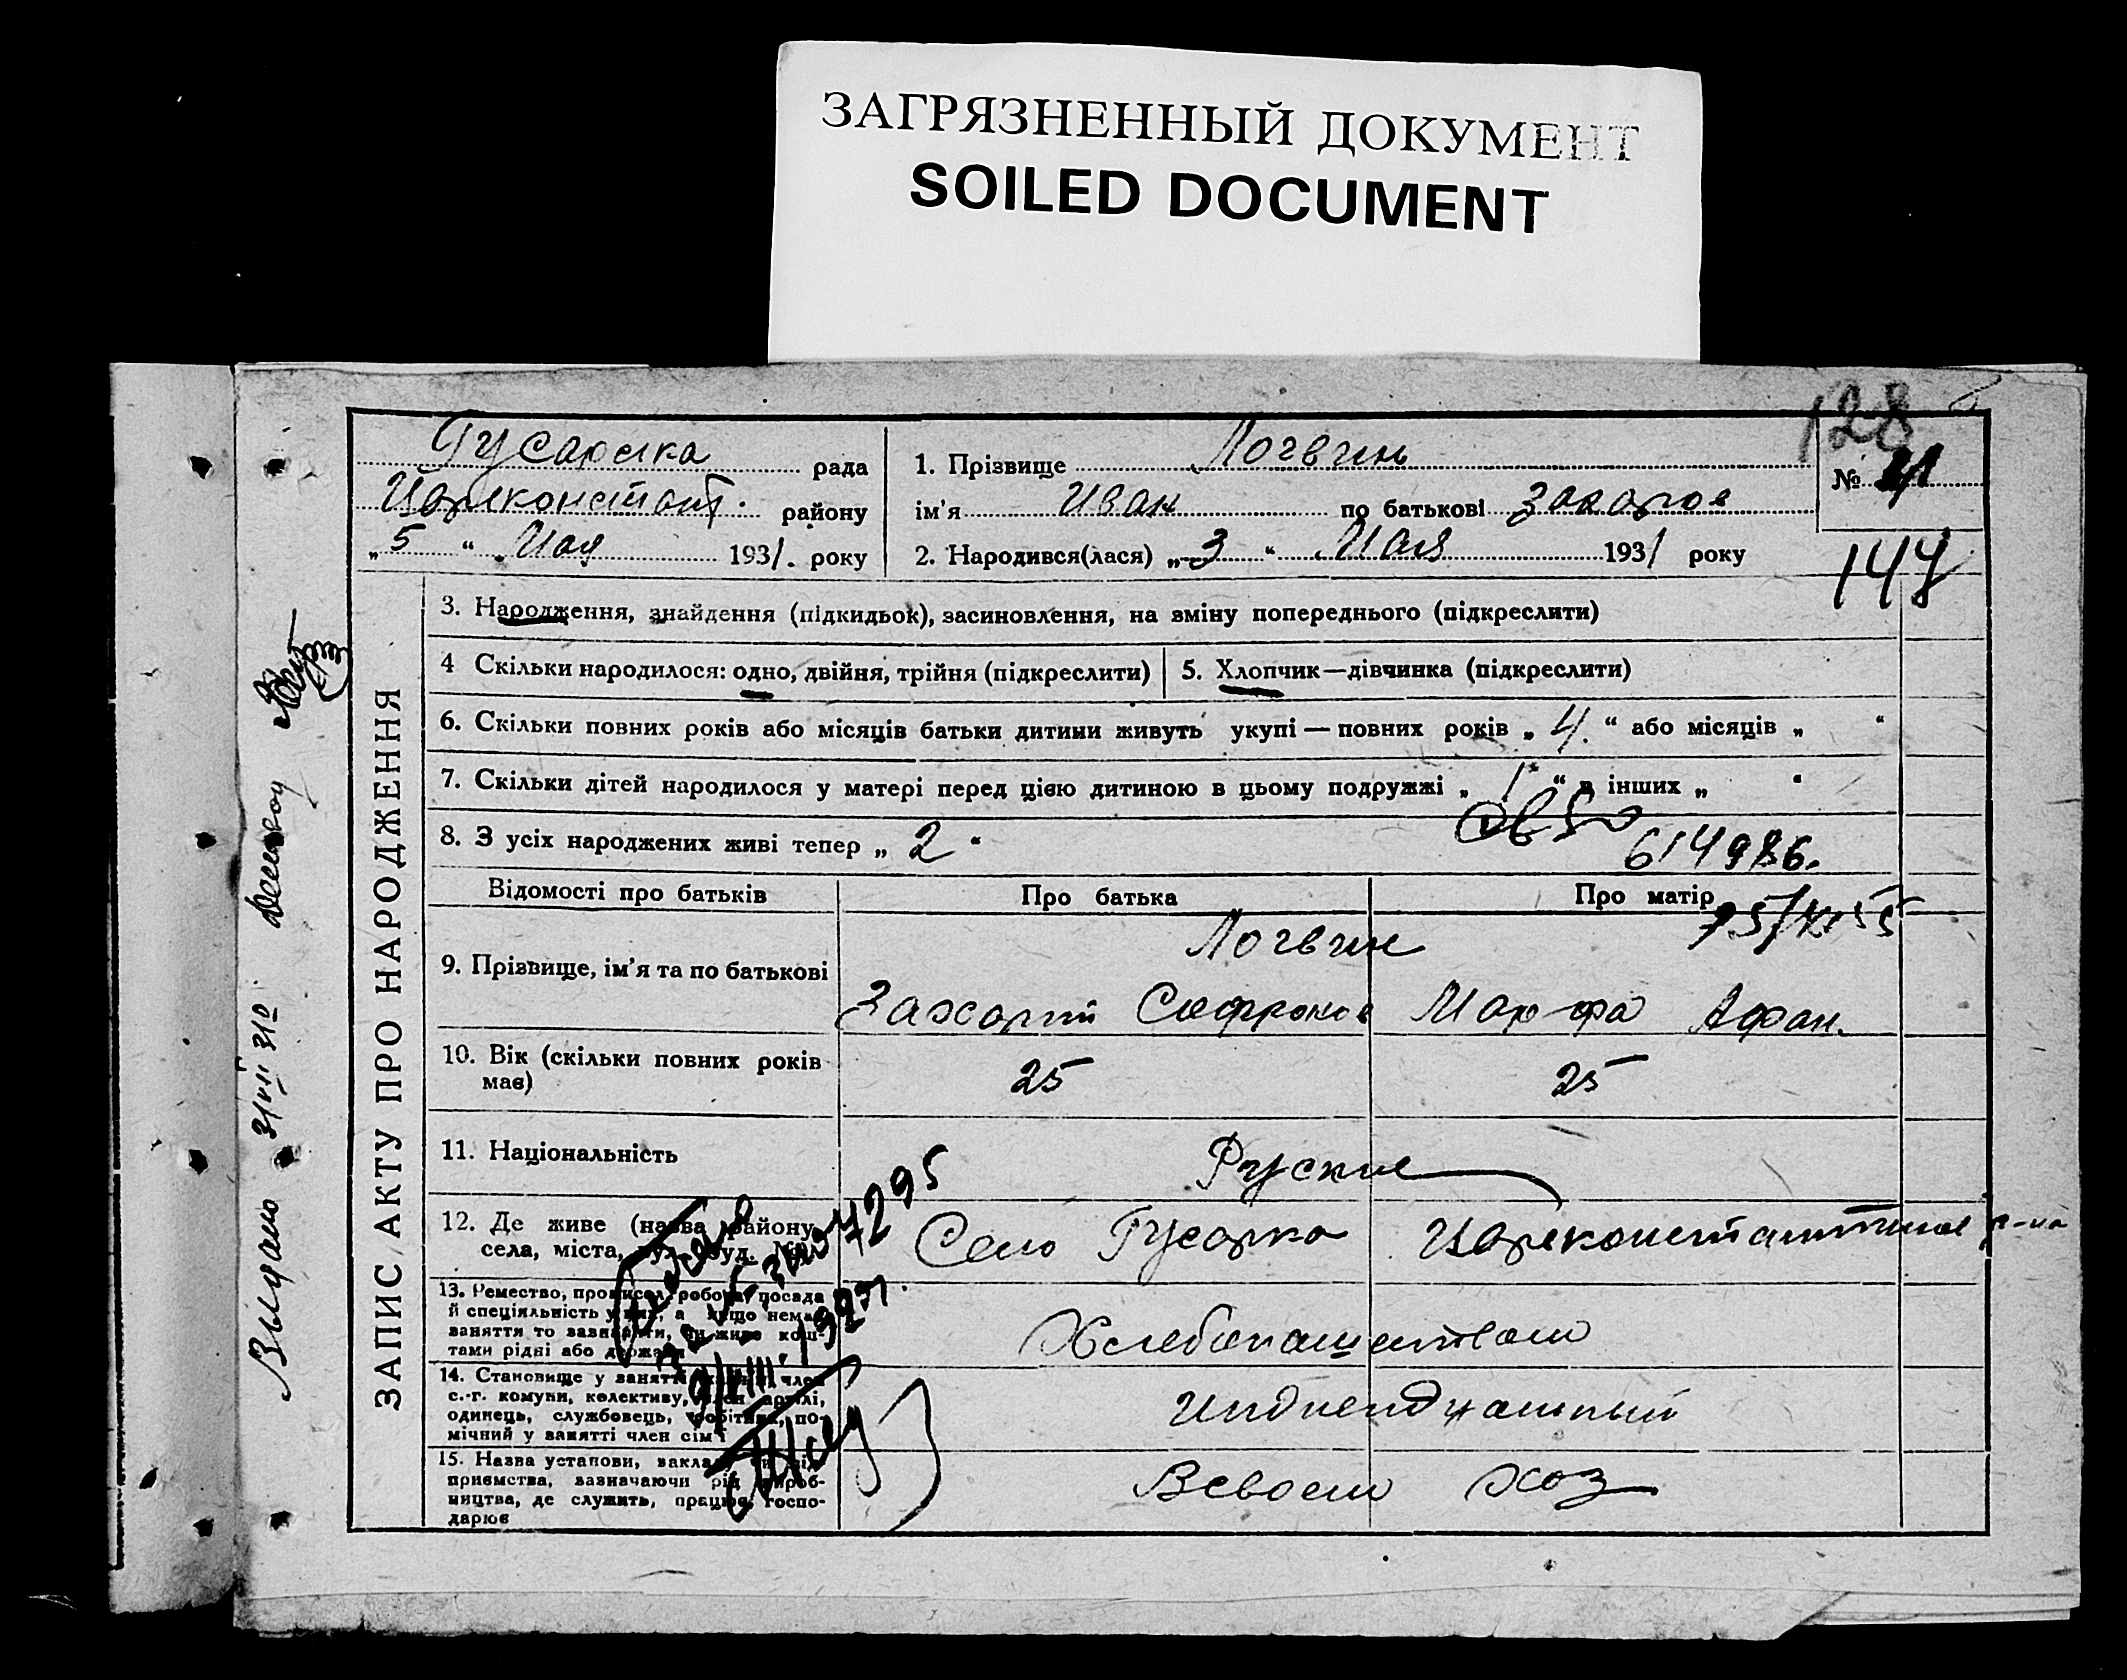 ЗАГРЯЗНЕННЫЙ ДОКУМЕНТ
SOILED DOCUMENT
128
Гусарска рада
Цареконстант. району
„ 5 “ „ Мая 1931. року
1. Прізвище Логвин
ім'я Иван по батькові Захаров
2. Народився(лася) „ 3 “ Мая 1931 року
№
147
ЗАПИС АКТУ ПРО НАРОДЖЕННЯ
3. Народження, знайдення (підкидьок), засиновлення, на зміну попереднього (підкреслити)
4 Скільки народилося: одно, двійня, трійня (підкреслити)
5. Хлопчик—дівчинка (підкреслити)
6. Скільки повних років або місяців батьки дитини живуть укупі — повних років „ 4. “ або місяців „ “
7. Скільки дітей народилося у матері перед цією дитиною в цьому подружжі „ 1 “ в інших „ “
8. З усіх народжених живі тепер „ 2 “
614986.
Відомості про батьків
Про батька
Про матір
9. Прізвище, ім'я та по батькові
Логвин
Захарий Сафронов Марфа Афан.
10. Вік (скільки повних років має)
25 25
11. Національність
Руские
12. Де живе (назва району, села, міста, вул. буд. №)
Село Гусарка Цареконстантинов р-на
13. Ремество, промисел, робота, посада
й спеціяльність у них, а якщо немає
заняття то зазначити, чи живе кош-
тами рідні або держави
Хлебопашеством
14. Становище у занятті: хазяїн, член
с.-г. комуни, колективу, член артілі,
одинець, службовець, робітник, по-
мічний у занятті член сім'ї
Индиендуальный
15. Назва установи, закладу чи під-
приємства, зазначаючи рід вироб-
ництва, де служить, працює, госпо-
дарює
Всвоем хоз
Выдано 31